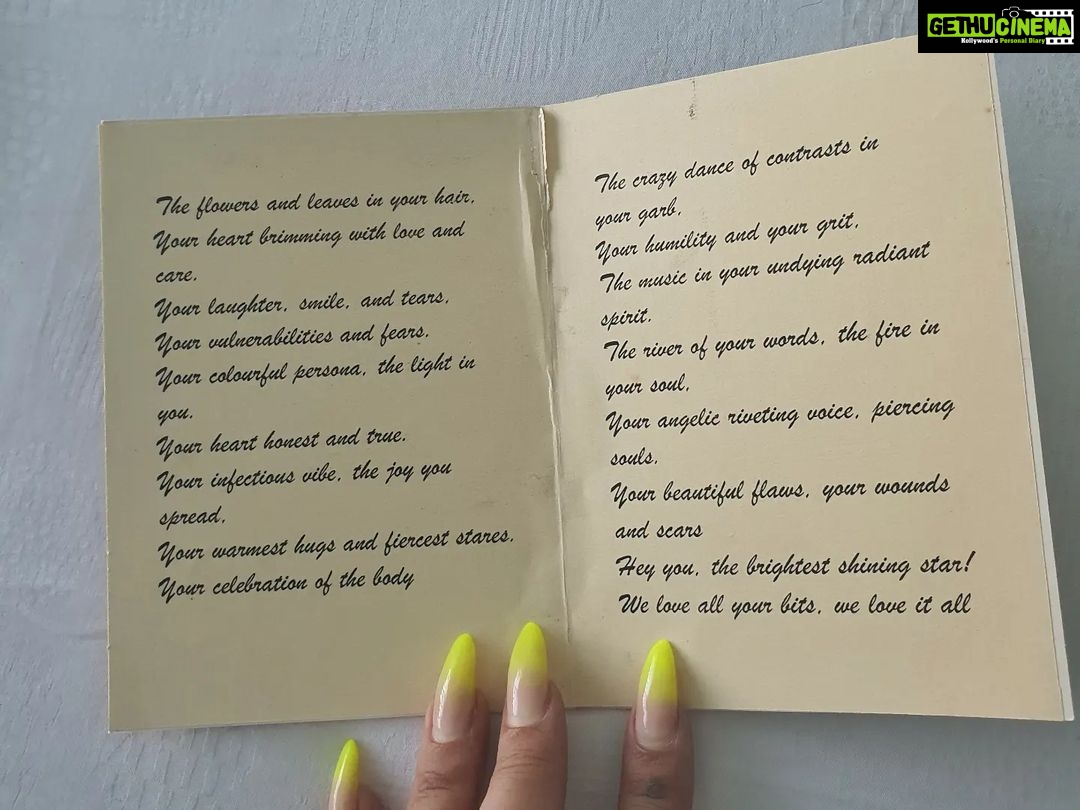 GETHUCINEMA
Kollywood's Personal Diary
The flowers and leaves in your hair,
Your heart brimming with love and
care,
Your laughter, smile, and tears,
Your vulnerabilities and fears,
Your colourful persona, the light in
you,
Your heart honest and true,
Your infectious vibe, the joy you
spread,
Your warmest hugs and fiercest stares,
Your celebration of the body
The crazy dance of contrasts in
your garb,
Your humility and your grit,
The music in your undying radiant
spirit,
The river of your words, the fire in
your soul,
Your angelic riveting voice, piercing
souls,
Your beautiful flaws, your wounds
and scars
Hey you, the brightest shining star!
We love all your bits, we love it all